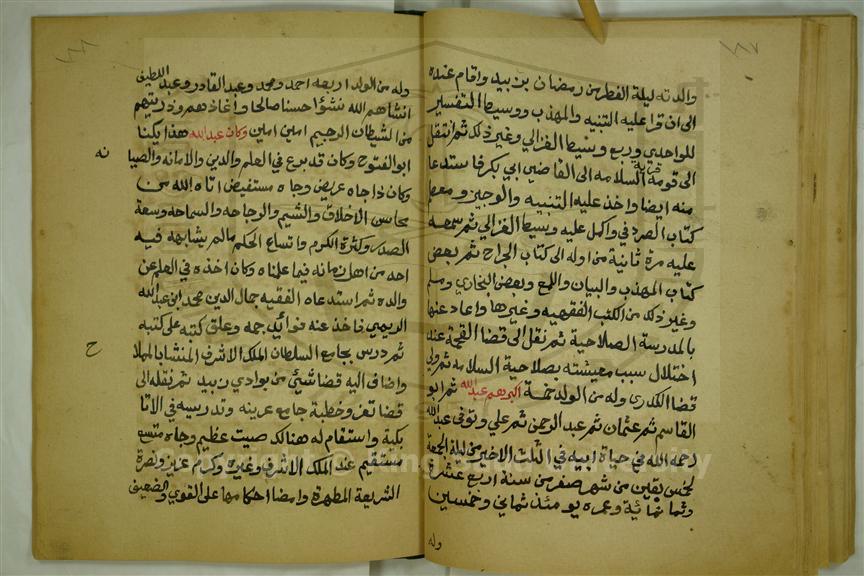 والدته ليلة الفطر من رمضان بزبيد واقام عنده
الى ان قرا عليه التنبيه والمهذب ووسيط التفسير
للواحدي وربع وسيط الغزالي وغير ذلك ثم انتقل
الى قرية السلامه الى القاضي ابي بكر فاستدعا
منه ايضا واخذ عليه التنبيه والوجيز ومعظم
كتاب الصردفي واكمل عليه وسيط الغزالي ثم سمعه
عليه مرة ثانية من اوله الى كتاب الجراح ثم بعض
كتاب المهذب والبيان واللمع وبعض البخاري ومسلم
وغير ذلك من الكتب الفقهيه وغيرها واعاد عنها
بالمدرسة الصلاحية ثم نقل الى قضا القحمة عند
اختلال سبب معيشته بصلاحية السلامه ثم ولي
قضا الكدرى وله من الولد خمسة اكبرهم عبد الله ثم ابو
القاسم ثم عثمان ثم عبد الرحمن ثم علي وتوفى عبد الله
رحمه الله في حياة ابيه في الثلث الاخير من ليلة الجمعة
لخمس بقين من شهر صفر من سنة اربع عشرة
وثمانمائة وعمره يومئذ ثماني وخمسين
وله
وله من الولد اربعه احمد ومحمد وعبد القادر وعبد اللطيف
انشاهم الله نشؤا حسنا صالحا واعاذهم وذريتهم
من الشيطان الرجيم امين امين وكان عبد الله هذا يكنا
ابو الفتوح وكان قد برع في العلم والدين والامانه والصيا
نه
وكان ذا جاه عريض وجاه مستفيض اتاه الله من
محاسن الاخلاق والشيم والوجاهه والسماحه وسعة
الصدر وكثرة الكرم واتساع الحلم مالم يشابهه فيه
احد من اهل زمانه فيما علمناه وكان اخذه في العلم عن
والده ثم استدعاه الفقيه جمال الدين محمد ابن عبد الله
الريمي فاخذ عنه فوائد جمه وعلق كتبه على كتبه
ثم درس بجامع السلطان الملك الاشرف المنشا بالمملا
ح
واضاف اليه قضا شيئ من بوادي زبيد ثم نقله الى
قضا تعز وخطبة جامع عرينه وتدريسه في الاتا
بكية واستقام له هنالك صيت عظيم وجاه متسع
مستقيم عند الملك الاشرف وغيره وكرام عزيز ونصرة
الشريعة المطهرة وامضا احكامها على القوي والضعيف